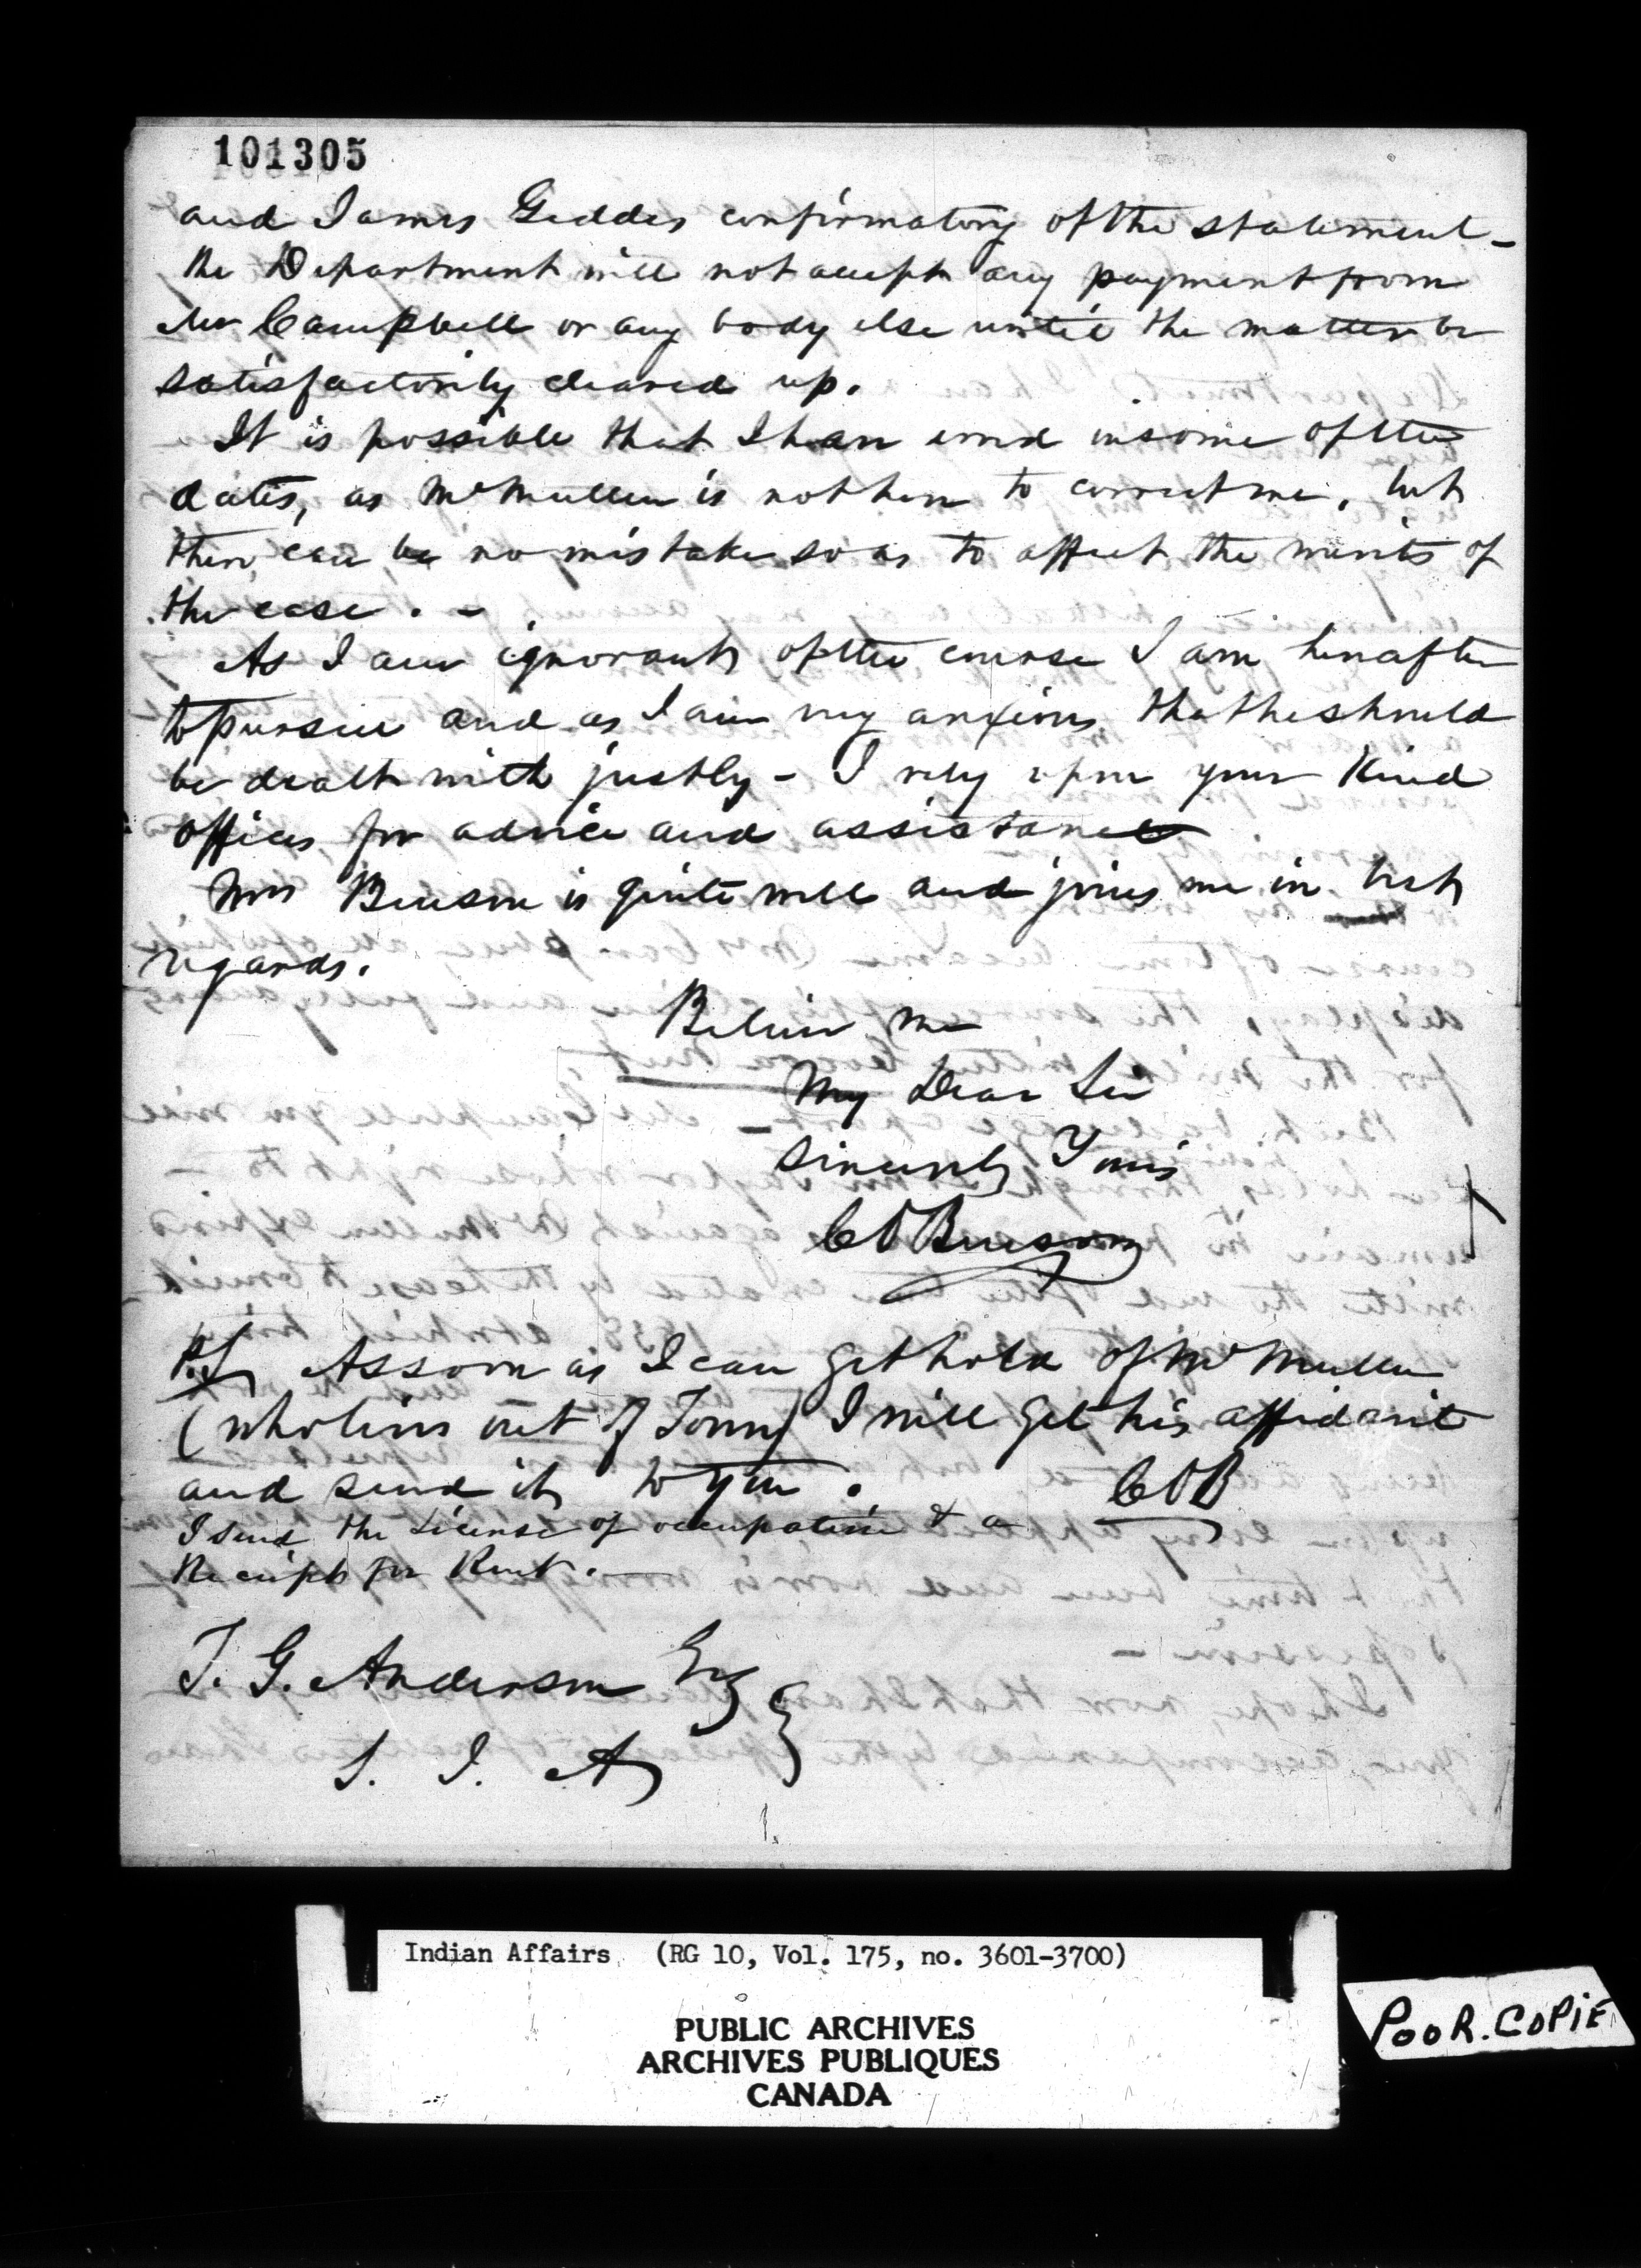 101305
and James Geddes confirmatory of the statement -
the Department will not accept any payment from
Mr Campbell or any body else until the matter be
satisfactorily cleared up.
It is possible that I have erred in some of the
dates, as McMullen is not here to correct me, but
there can be no mistake so as to affect the merits of
the case. -
As I am ignorant of the course I am hereafter
to pursue and as I am very anxious that he should
be dealt with justly - I rely upon your Kind
offices for advice and assistance
Mrs Benson is quite well and joins me in best
regards.
Believe me
My Dear Sir
Sincerely Yours
C O Benson
P.S. As soon as I can get hold of McMullen
(who lives out of Town) I will get his affidavit
and send it to you. C O B
I send the License of occupation & a
Receipt for Rent. -
T. G. Anderson Esq
S. I. A
Indian Affairs (RG 10, Vol. 175, no. 3601-3700)
PUBLIC ARCHIVES
ARCHIVES PUBLIQUES
CANADA
POOR. COPIE